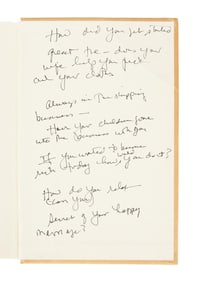 How did you get started
great tie – does your
wife help you pick
out your clothes
Always in the shipping
business –
Have your children gone
into the business with you
If you wanted to become
rich today how would you do it?
How do you relax
(can you)
Secret of your happy
marriage?